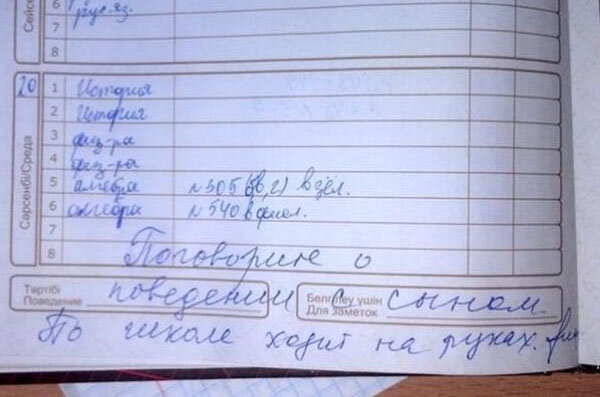 6
рус.яз.
7
8
20
Сәрсенбі/Среда
1 История
2 История
3 физ-ра
4 физ-ра
5 алгебра №505(б,в,г) в зел.
6 алгебра №540 в фиол.
7
8
Поговорите о
Тәртібі
Поведение
поведении с сыном.
Белгілеу үшін
Для заметок
По школе ходит на руках.